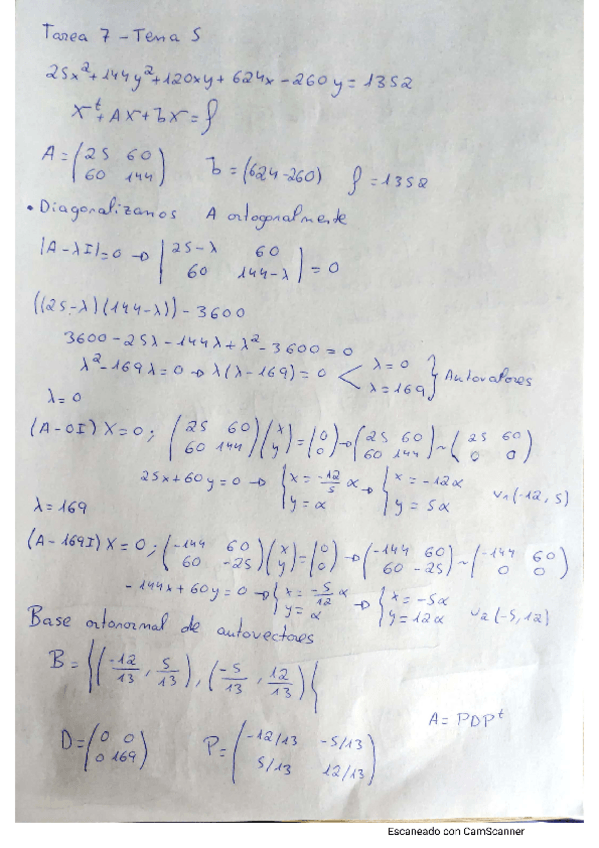 Tarea 7 - Tema 5
25x²+144y²+120xy+624x-260y=1352
x^t+Ax+bx=f
A=(25 60 / 60 144) b=(624-260) f=1352
• Diagonalizamos A ortogonalmente
|A-λI|=0 → |25-λ 60 / 60 144-λ|=0
((25-λ)(144-λ))-3600
3600-25λ-144λ+λ²-3600=0
λ²-169λ=0 → λ(λ-169)=0 < λ=0 / λ=169 } Autovalores
λ=0
(A-0I)X=0; (25 60 / 60 144)(x / y)=(0 / 0)→(25 60 / 60 144)~(25 60 / 0 0)
25x+60y=0 → {x=-12/5 α / y=α → {x=-12α / y=5α v1(-12,5)
λ=169
(A-169I)X=0; (-144 60 / 60 -25)(x / y)=(0 / 0)→(-144 60 / 60 -25)~(-144 60 / 0 0)
-144x+60y=0 → {x=-5/12 α / y=α → {x=-5α / y=12α v2(-5,12)
Base ortonormal de autovectores
B={(-12/13, 5/13), (-5/13, 12/13){
A=PDP^t
D=(0 0 / 0 169) P=(-12/13 -5/13 / 5/13 12/13)
Escaneado con CamScanner